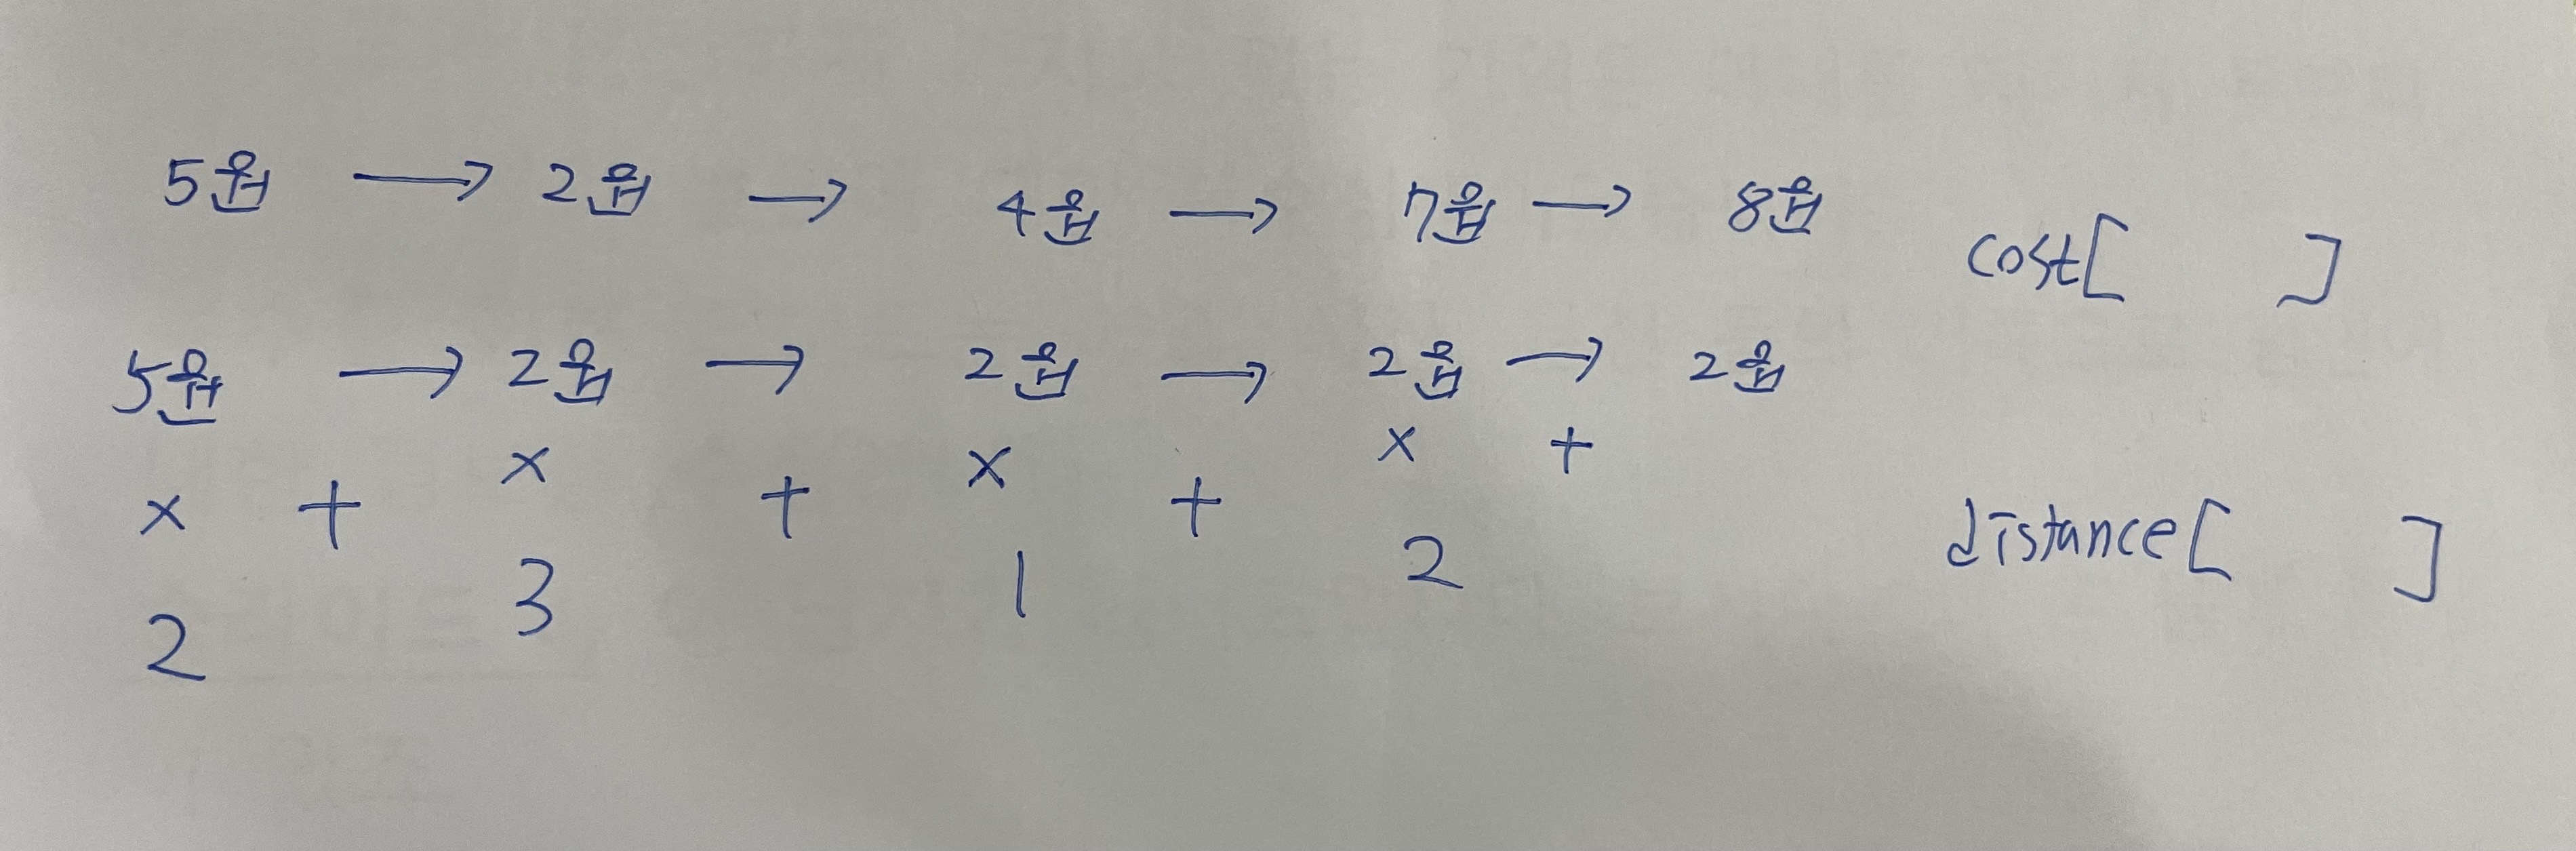 5원 → 2원 → 4원 → 7원 → 8원 cost[ ]
5원 → 2원 → 2원 → 2원 → 2원
x + x + x + x +
2 3 1 2 distance[ ]